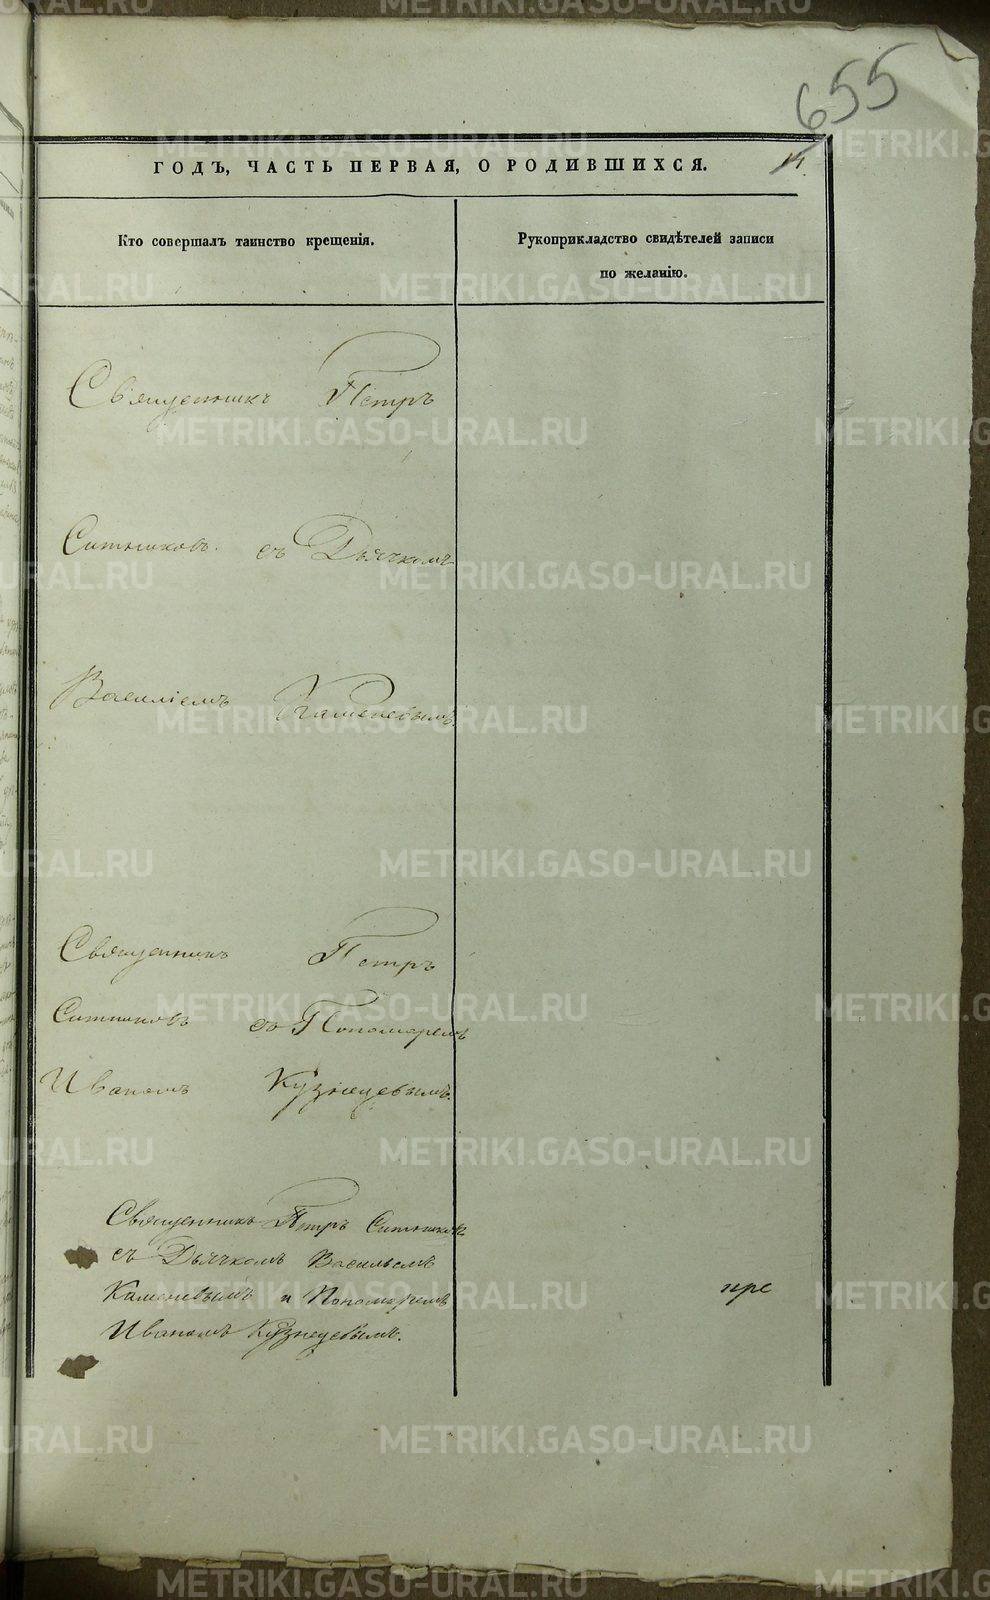 655
ГОДЪ, ЧАСТЬ ПЕРВАЯ, О РОДИВШИХСЯ.
Кто совершалъ таинство крещенія.
Рукоприкладство свидѣтелей записи
по желанію.
Священникъ Петръ
Ситниковъ. съ Дьячкомъ
Василіемъ Каменевымъ
Священникъ Петръ
Ситниковъ съ Пономаремъ
Иваномъ Кузнецевымъ.
Священникъ Петръ Ситниковъ
съ Дьячкомъ Васильемъ
Каменевымъ и Пономаремъ
Иваномъ Кузнецевымъ.
пре
METRIKI.GASO-URAL.RU